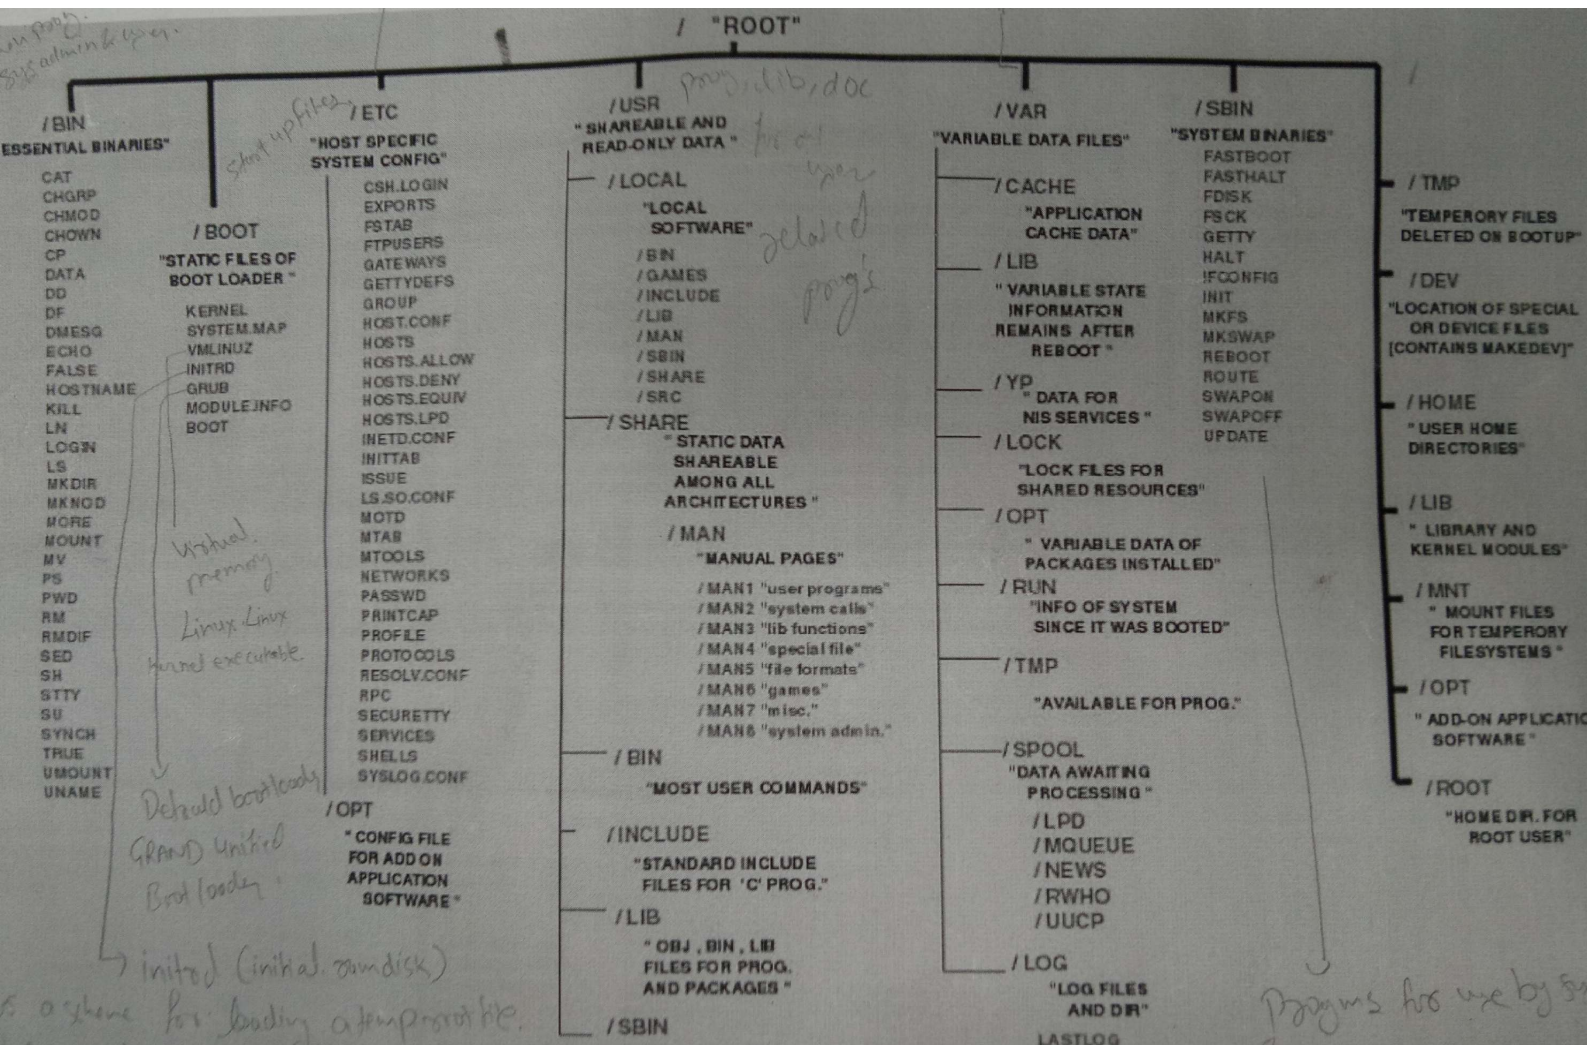 / "ROOT"
/BIN
ESSENTIAL BINARIES"
CAT
CHGRP
CHMOD
CHOWN
CP
DATA
DD
DF
DMESG
ECHO
FALSE
HOSTNAME
KILL
LN
LOGIN
LS
MKDIR
MKNOD
MORE
MOUNT
MV
PS
PWD
RM
RMDIF
SED
SH
STTY
SU
SYNCH
TRUE
UMOUNT
UNAME
/BOOT
"STATIC FILES OF
BOOT LOADER "
KERNEL
SYSTEM.MAP
VMLINUZ
INITRD
GRUB
MODULE.INFO
BOOT
virtual
memory
Linux Linux
kernel executable
bootloader
GRAND Unified
Bootloader
initrd (initial ramdisk)
a scheme for loading a temp root file.
start up files
/ETC
"HOST SPECIFIC
SYSTEM CONFIG"
CSH.LOGIN
EXPORTS
FSTAB
FTPUSERS
GATEWAYS
GETTYDEFS
GROUP
HOST.CONF
HOSTS
HOSTS.ALLOW
HOSTS.DENY
HOSTS.EQUIV
HOSTS.LPD
INETD.CONF
INITTAB
ISSUE
LS.SO.CONF
MOTD
MTAB
MTOOLS
NETWORKS
PASSWD
PRINTCAP
PROFILE
PROTOCOLS
RESOLV.CONF
RPC
SECURETTY
SERVICES
SHELLS
SYSLOG.CONF
/OPT
"CONFIG FILE
FOR ADD ON
APPLICATION
SOFTWARE"
/USR
"SHAREABLE AND
READ-ONLY DATA "
prog, lib, doc
for
user
related
prog's
/LOCAL
"LOCAL
SOFTWARE"
/BIN
/GAMES
/INCLUDE
/LIB
/MAN
/SBIN
/SHARE
/SRC
/SHARE
" STATIC DATA
SHAREABLE
AMONG ALL
ARCHITECTURES "
/MAN
"MANUAL PAGES"
/MAN1 "user programs"
/MAN2 "system calls"
/MAN3 "lib functions"
/MAN4 "special file"
/MAN5 "file formats"
/MAN6 "games"
/MAN7 "misc."
/MAN8 "system admin."
/BIN
"MOST USER COMMANDS"
/INCLUDE
"STANDARD INCLUDE
FILES FOR 'C' PROG."
/LIB
" OBJ , BIN , LIB
FILES FOR PROG.
AND PACKAGES "
/SBIN
/VAR
"VARIABLE DATA FILES"
/CACHE
"APPLICATION
CACHE DATA"
/LIB
" VARIABLE STATE
INFORMATION
REMAINS AFTER
REBOOT "
/YP
" DATA FOR
NIS SERVICES "
/LOCK
"LOCK FILES FOR
SHARED RESOURCES"
/OPT
" VARIABLE DATA OF
PACKAGES INSTALLED"
/RUN
"INFO OF SYSTEM
SINCE IT WAS BOOTED"
/TMP
"AVAILABLE FOR PROG."
/SPOOL
"DATA AWAITING
PROCESSING "
/LPD
/MQUEUE
/NEWS
/RWHO
/UUCP
/LOG
"LOG FILES
AND DIR"
LASTLOG
/SBIN
"SYSTEM BINARIES"
FASTBOOT
FASTHALT
FDISK
FSCK
GETTY
HALT
IFCONFIG
INIT
MKFS
MKSWAP
REBOOT
ROUTE
SWAPON
SWAPOFF
UPDATE
for use by
/TMP
"TEMPERORY FILES
DELETED ON BOOTUP"
/DEV
"LOCATION OF SPECIAL
OR DEVICE FILES
[CONTAINS MAKEDEV]"
/HOME
"USER HOME
DIRECTORIES"
/LIB
" LIBRARY AND
KERNEL MODULES"
/MNT
" MOUNT FILES
FOR TEMPERORY
FILESYSTEMS "
/OPT
" ADD-ON APPLICATIO
SOFTWARE "
/ROOT
"HOME DIR. FOR
ROOT USER"